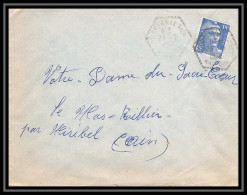 Notre-Dame du Sacré-Coeur
le Mas-Rillier
par Miribel (Ain)